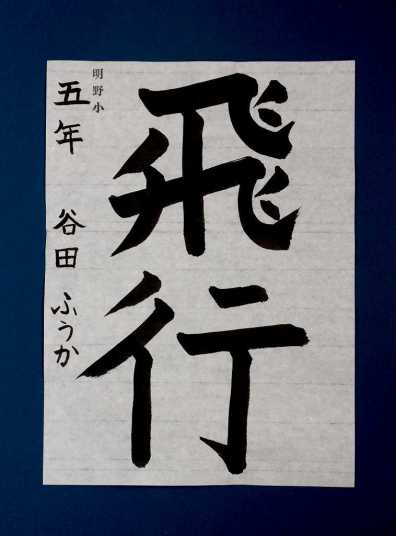 飛行
明野小
五年 谷田ふうか